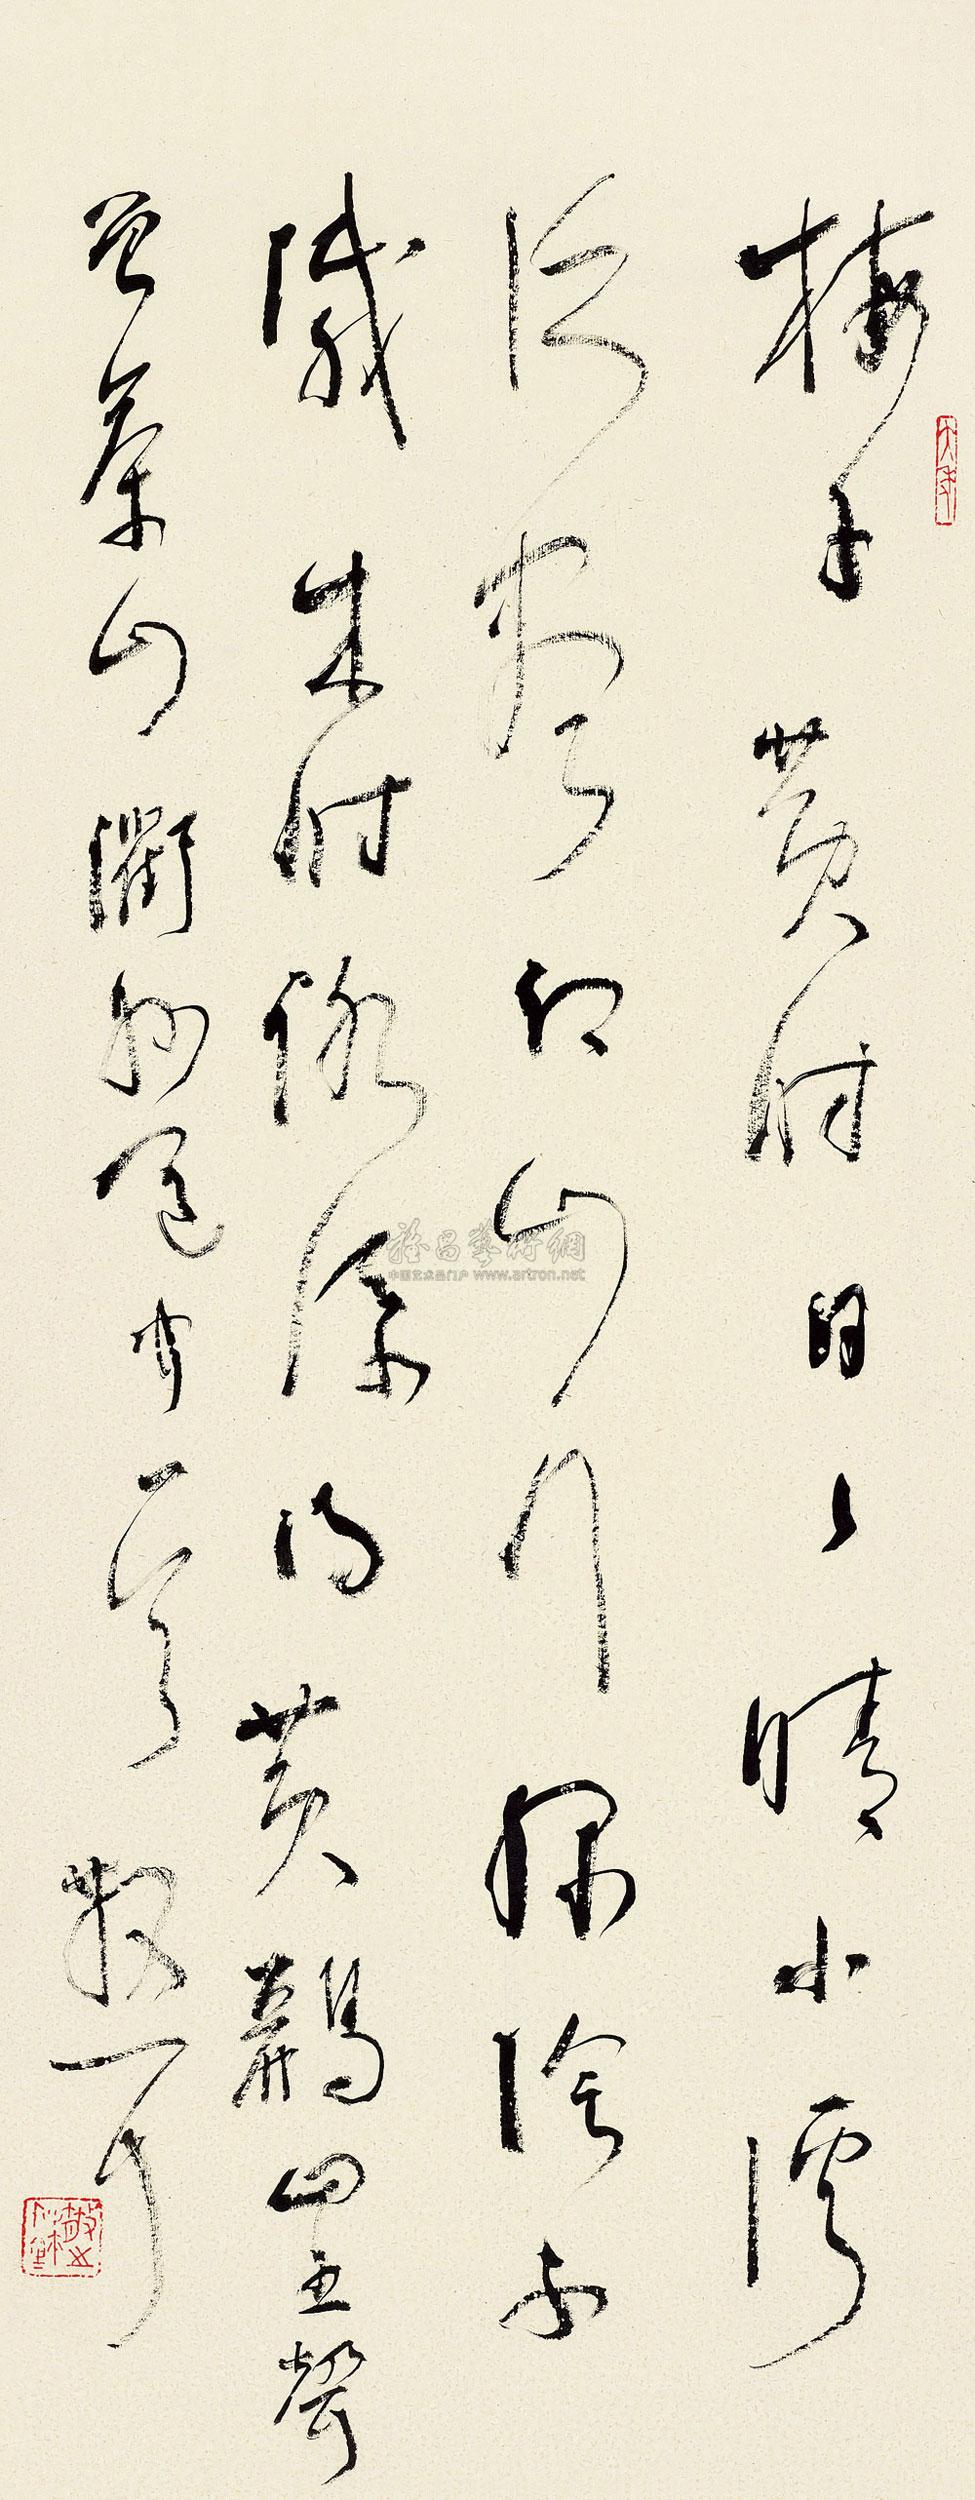 梅子黄时日日晴小溪
泛尽却山行绿阴不
减来时路添得黄鹂四五声
曾几 山 衢州道中一首 散一
雅昌艺术网
中国艺术品门户 www.artron.net